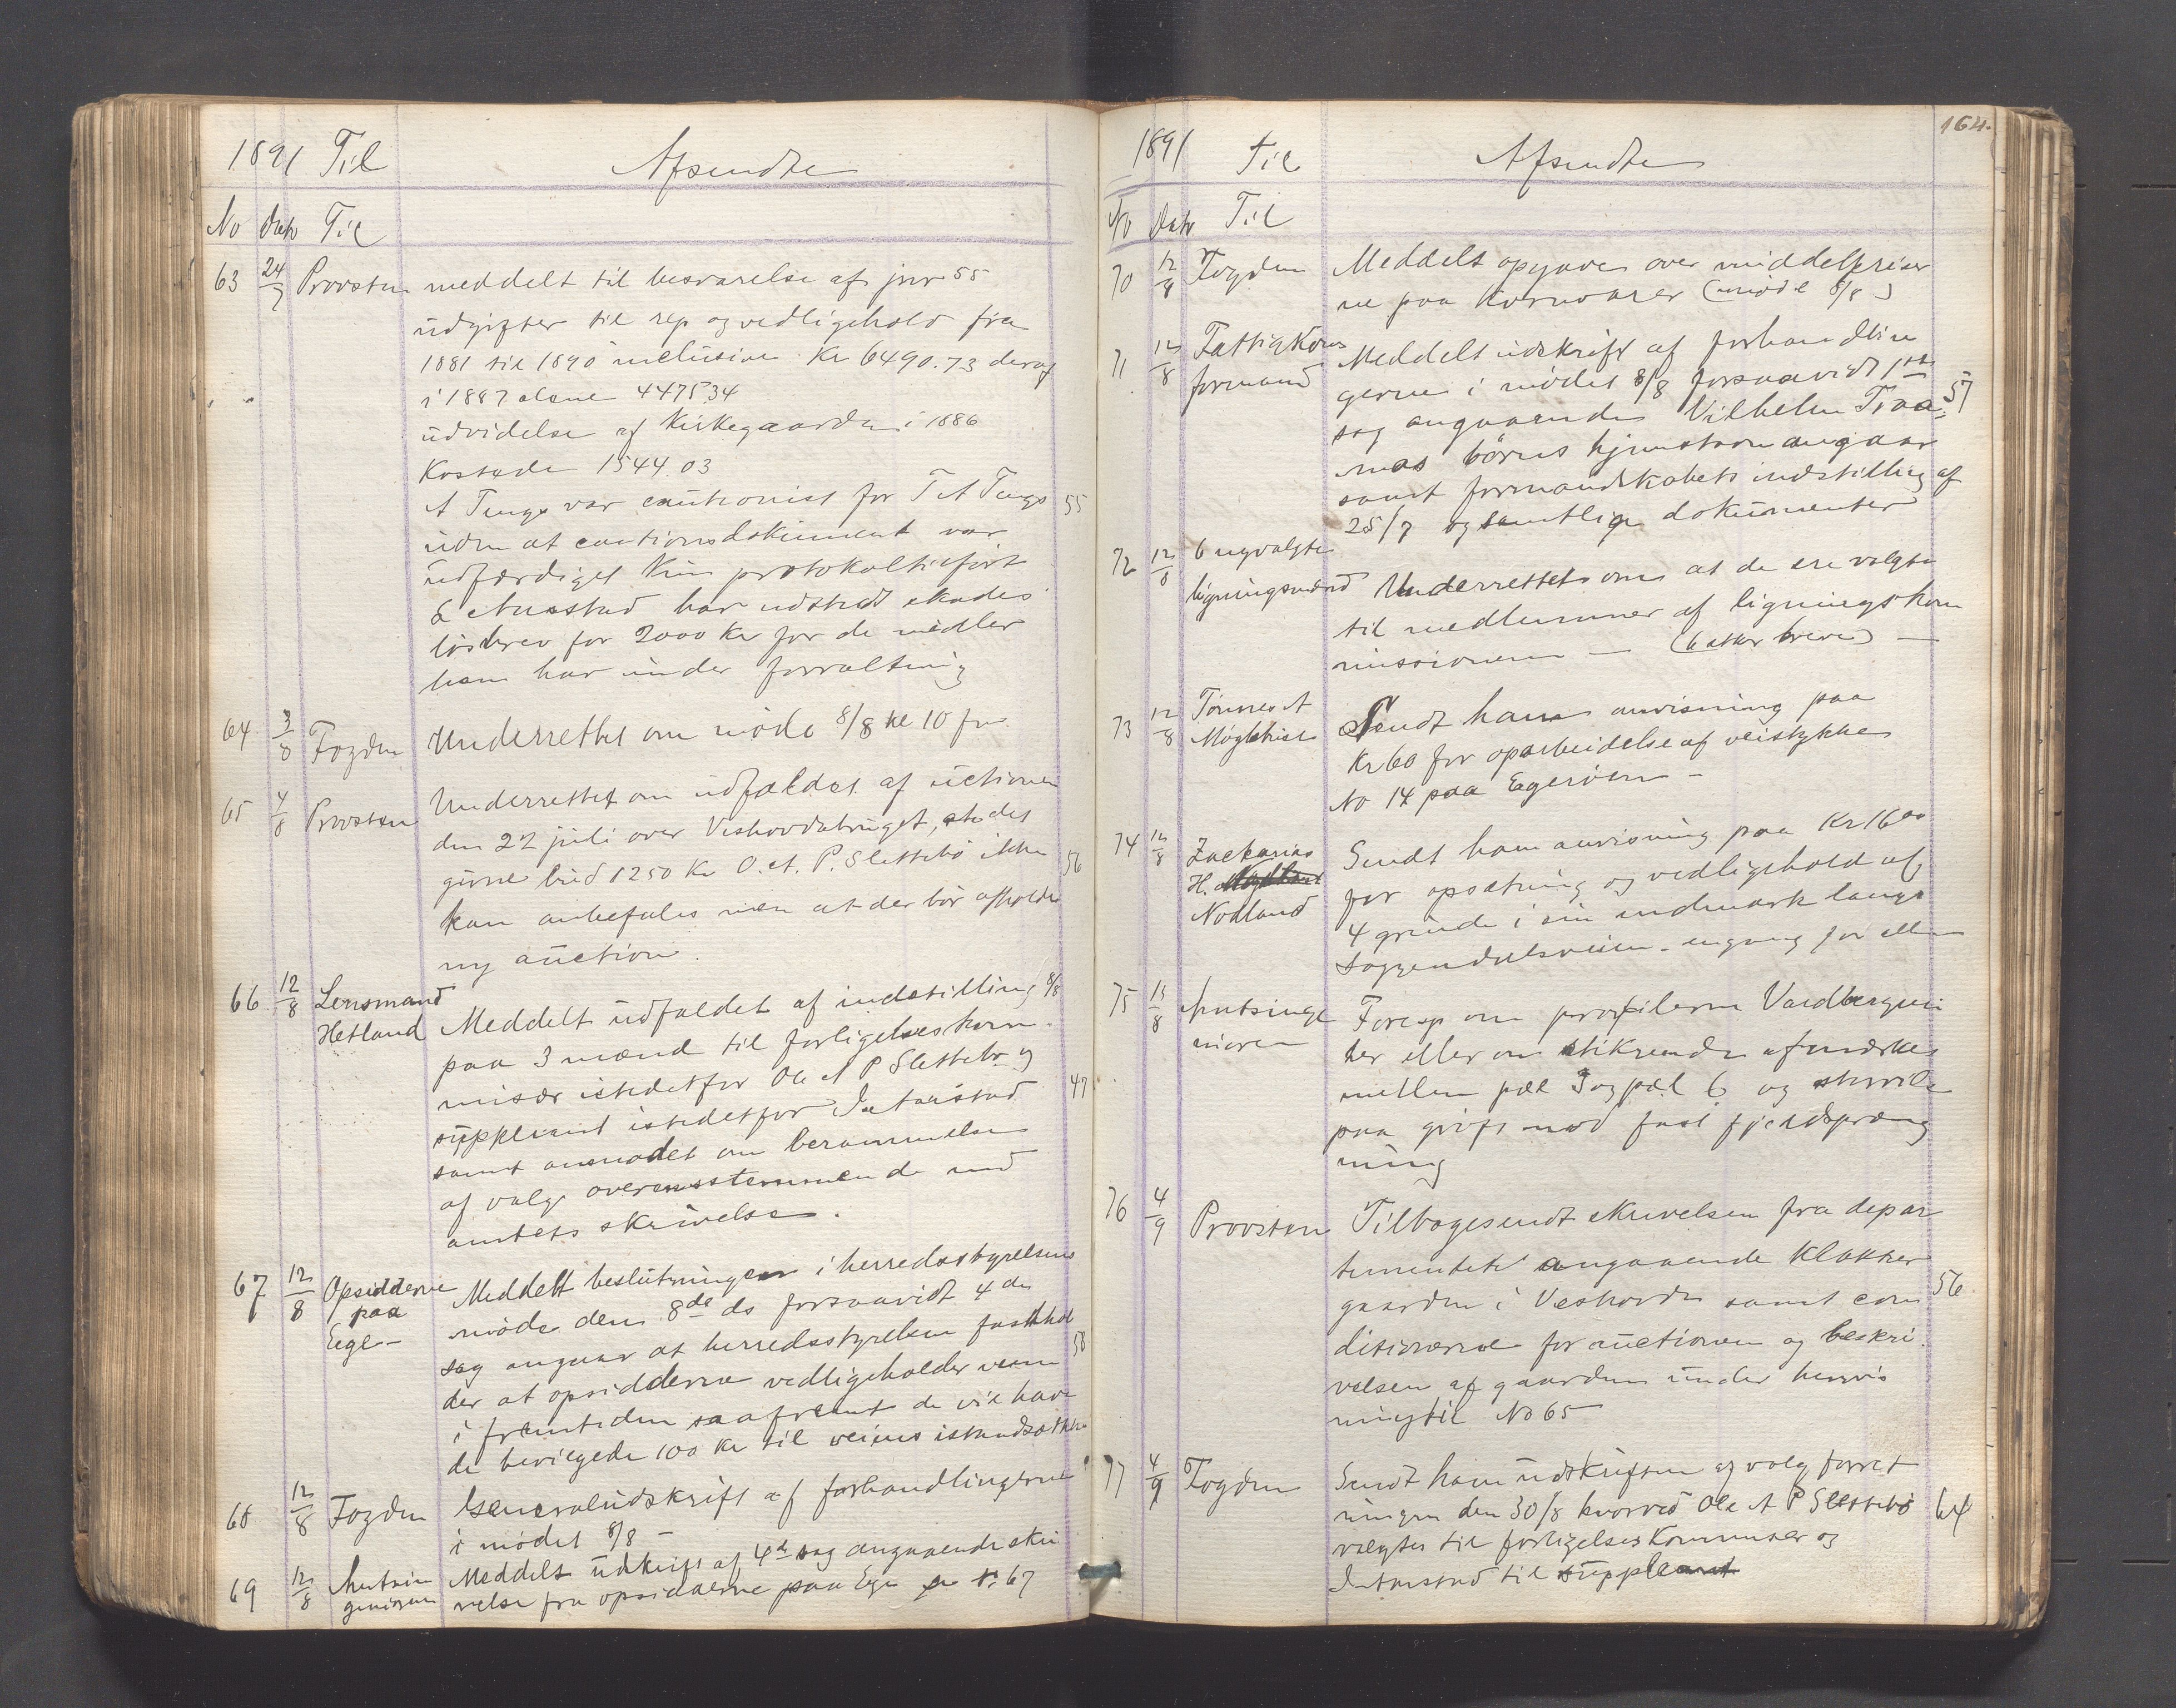 1891 Til Afsendte
No Dato Til
63 24/7 Provsten meddelt til besvarelse af jnr 55
udgifter til rep og vedligehold fra
1881 til 1890 inclusive Kr 6490.73 deraf
i 1887 alene 4475.34
udvidelse af Kirkegaarden i 1886
Kostede 1544.03
A Tengs var cautionist for T A Tengs 55
uden at cautionsdokument var
udfærdiget kun protokoltilført
har udstedt skades
løsbrev for 2000 Kr for de midler
han har under forvaltning
64 3/8 Fogden Underrettet om møde 8/8 kl 10 fm
65 4/8 Provsten Underrettet om udfaldet af auctionen
den 22 juli over Veshovdabruget, at det
givne bud 1250 Kr O. A. P. Slettebö ikke 56
kan anbefales men at der bör afholdes
ny auction.
66 12/8 Lensmand Meddelt udfaldet af indstilling 8/8
Hetland paa 3 mænd til forligelseskom-
misær istedetfor Ole A P Slettebö og 47
suppleant istedetfor
samt anmodet om berammelse
af valg overensstemmende med
amtets skrivelse.
67 12/8 Opsidderne Meddelt beslutningen i herredsstyrelsens
paa møde den 8de ds forsaavidt 4de
Ege- sag angaar at herredsstyrelsen fasthol 58
der at opsidderne vedligeholder veien
i fremtiden saafremt de vil have
de bevilgede 100 Kr til veiens istandsættelse
68 12/8 Fogden Generaludskrift af forhandlingerne
i mødet 8/8
69 12/8 Amtsin Meddelt udskrift af 4de sag angaaende skri
geniøren velse fra opsidderne paa Ege 67
164.
1891 Til Afsendte
No Dato Til
70 12/8 Fogden Meddelt opgaver over middelpriser
ne paa Kornvarer (møde 8/8)
71 12/8 Fattigkoms Meddelt udskrift af forhandlin
formand gerne i mødet 8/8 forsaavidt 1ste 57
sag angaaende Vilhelm Traa-
mas börns hjemstavn angaar
samt formandskabets indstilling af
25/7 og samtlige dokumenter
72 12/8 6 nyvalgte
ligningsmænd Underrettet om at de ere valgte
til medlemmer af ligningskom
missionen — (6 breve) —
73 12/8 Tønnes A Sendt ham anvisning paa
Møgletvist Kr 60 for oparbeidelse af veistykke
No 14 paa Egerøen -
74 12/8 Zacharias Sendt ham anvisning paa Kr 16.00
H. for opsætning og vedligehold af
Nodland 4 grinde i sin indmark langs
Soggendalsveien - engang for alle
75 15/8 Amtsinge Foresp om profilerne Vardberg
niøren her eller om stikrende afmærkes
mellem pæl 3 og pæl 6 og
paa grøft mod fast fjeldspræng
ning
76 4/9 Provsten Tilbagesendt skrivelsen fra depar
tementet angaaende Klokker
gaarden i Veshovde samt con 56
ditionerne for auctionen og beskri-
velsen af gaarden under henvis
ning til No 65
77 4/9 Fogden Sendt ham udskriften af valg forret
ningen den 30/8 hvorved Ole A P Slettebö 64
valgtes til forligelseskommisær og
til suppleant